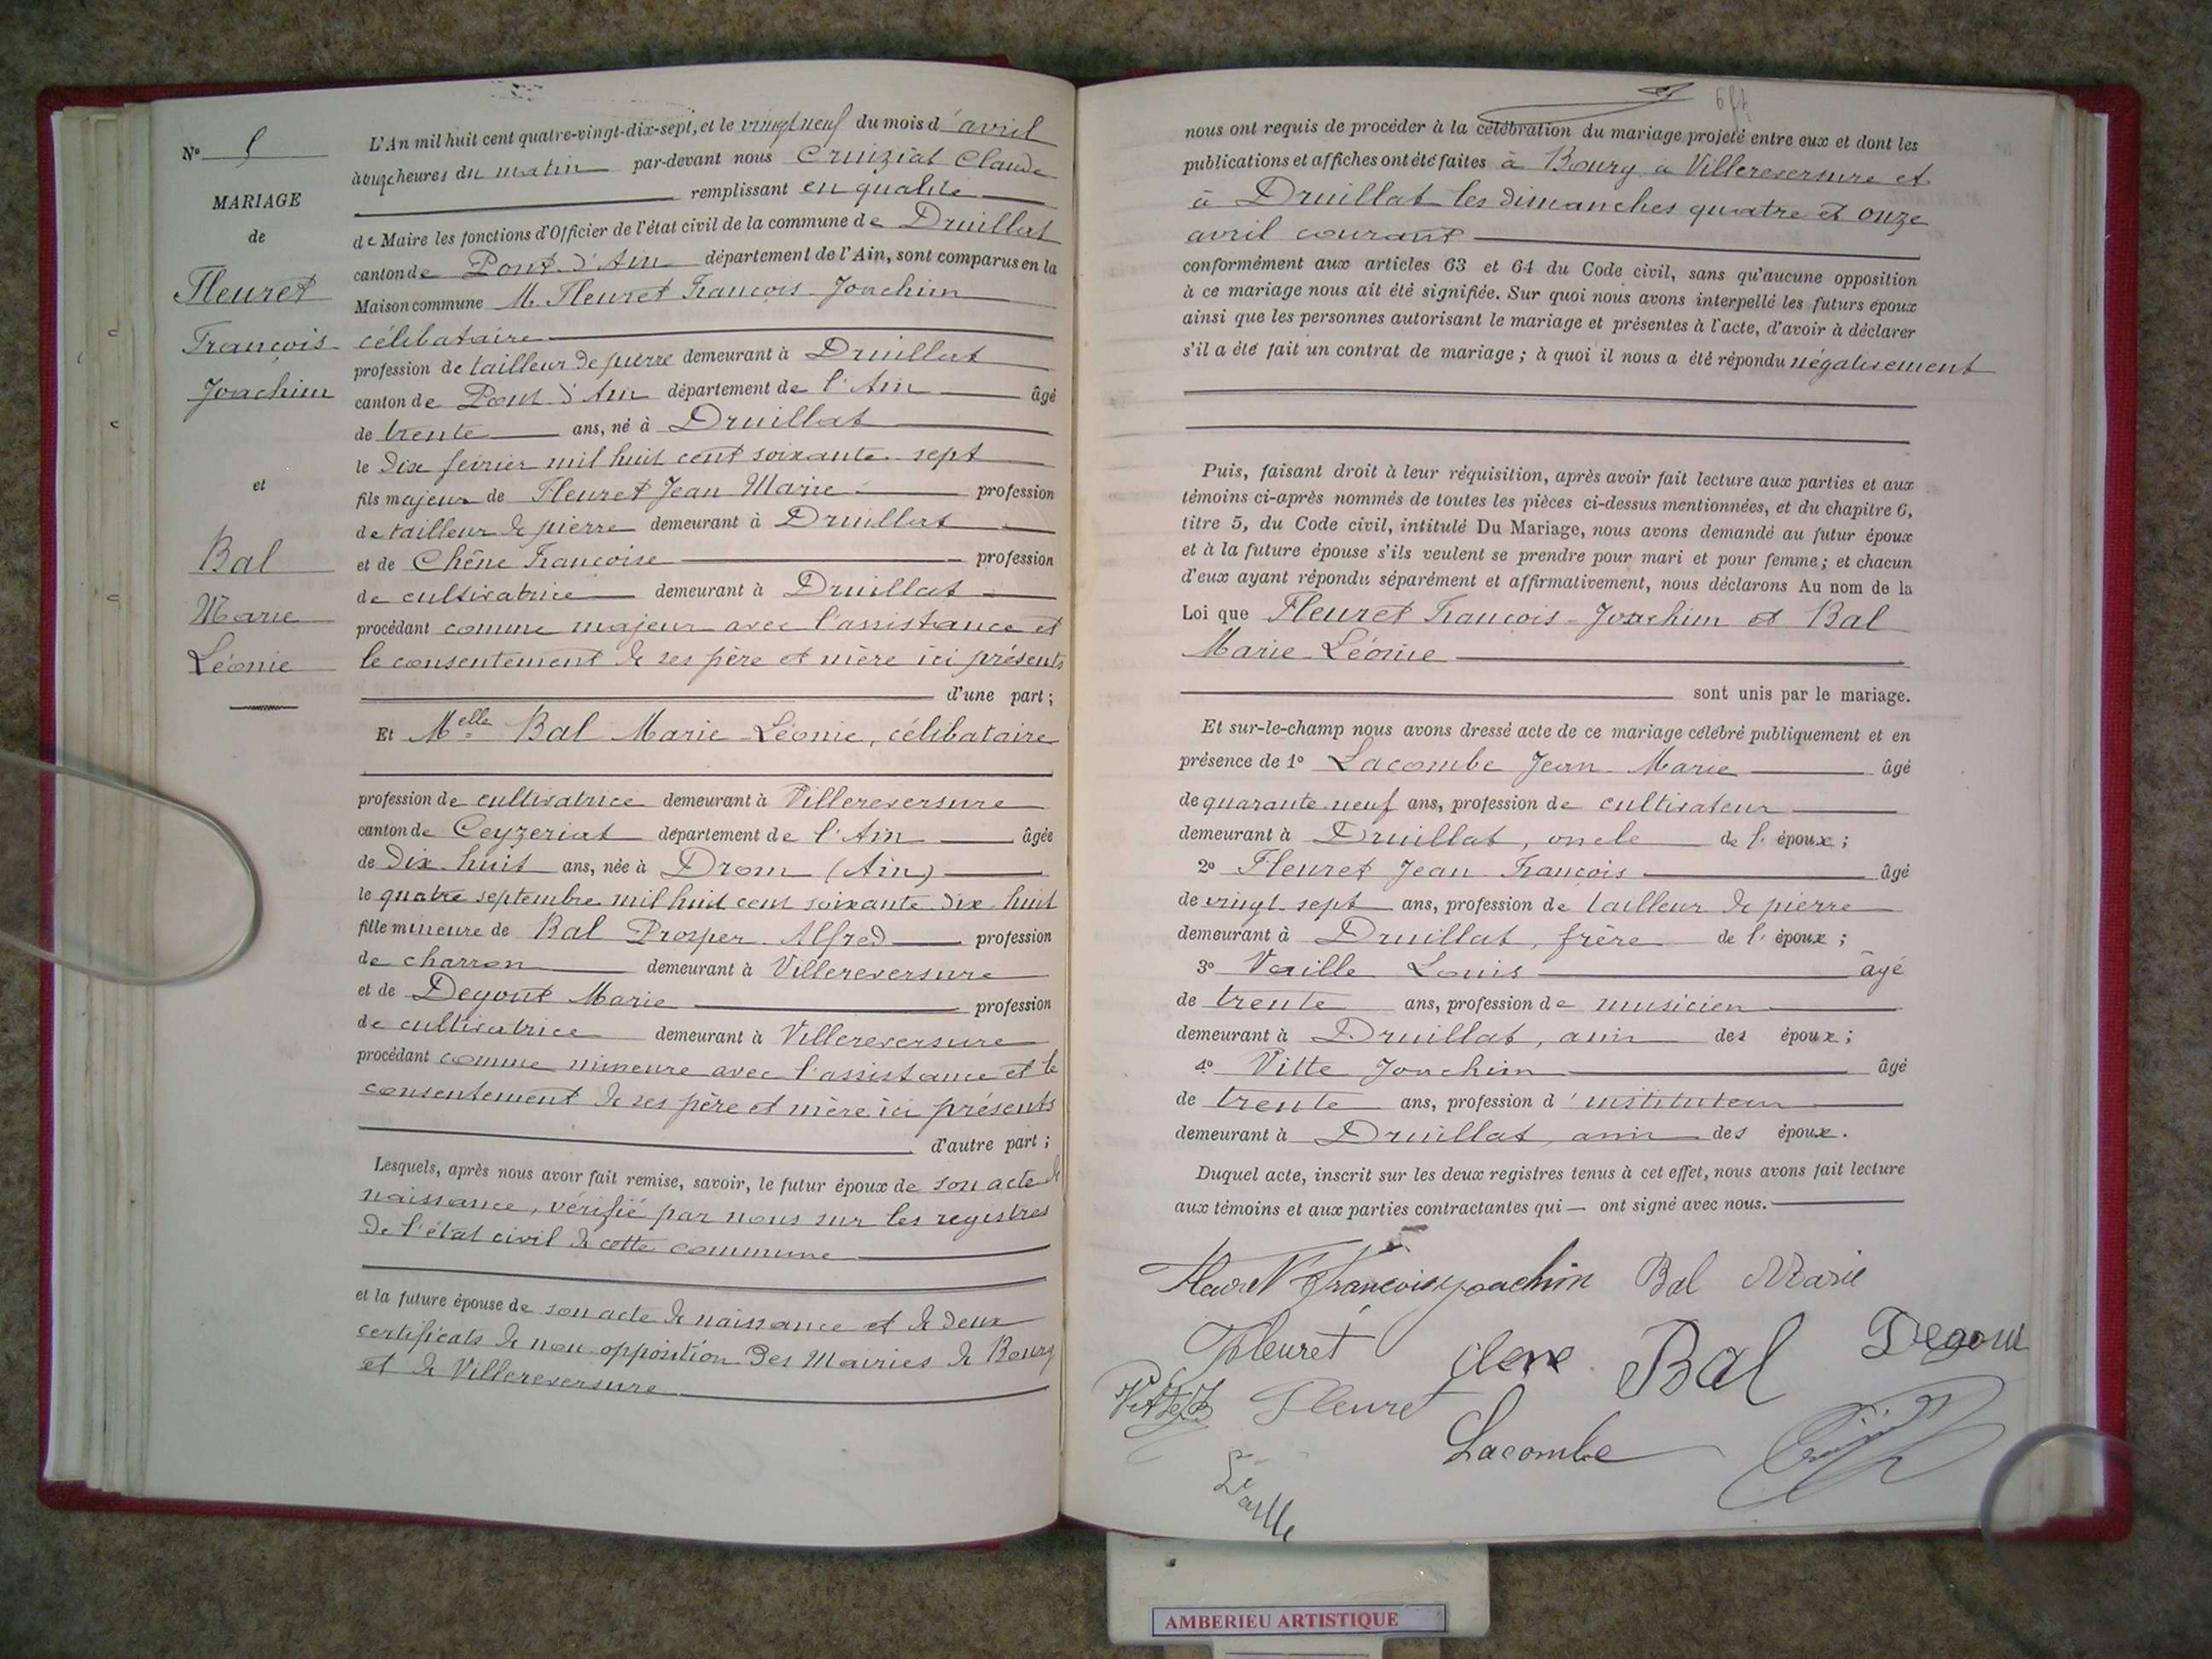 N° 5
MARIAGE
de
Fleuret
François
Joachim
et
Bal
Marie
Léonie
L'An mil huit cent quatre-vingt-dix-sept, et le vingt neuf du mois d'avril
à onze heures du matin par-devant nous Cruiziat Claude
remplissant en qualité
de Maire les fonctions d'Officier de l'état civil de la commune de Druillat
canton de Pont d'Ain département de l'Ain, sont comparus en la
Maison commune M. Fleuret François Joachim
célibataire
profession de tailleur de pierre demeurant à Druillat
canton de Pont d'Ain département de l'Ain âgé
de trente ans, né à Druillat
le dix février mil huit cent soixante sept
fils majeur de Fleuret Jean Marie profession
de tailleur de pierre demeurant à Druillat
et de Chêne Françoise profession
de cultivatrice demeurant à Druillat
procédant comme majeur avec l'assistance et
le consentement de ses père et mère ici présents
d'une part ;
Et Melle Bal Marie Léonie, célibataire
profession de cultivatrice demeurant à Villereversure
canton de Ceyzeriat département de l'Ain âgée
de dix huit ans, née à Drom (Ain)
le quatre septembre mil huit cent soixante dix huit
fille mineure de Bal Prosper Alfred profession
de charron demeurant à Villereversure
et de Degout Marie profession
de cultivatrice demeurant à Villereversure
procédant comme mineure avec l'assistance et le
consentement de ses père et mère ici présents
d'autre part ;
Lesquels, après nous avoir fait remise, savoir, le futur époux de son acte de
naissance, vérifié par nous sur les registres
de l'état civil de cette commune
et la future épouse de son acte de naissance et de deux
certificats de non opposition des Mairies de Bourg
et de Villereversure
nous ont requis de procéder à la célébration du mariage projeté entre eux et dont les
publications et affiches ont été faites à Bourg à Villereversure et
à Druillat les dimanches quatre et onze
avril courant
conformément aux articles 63 et 64 du Code civil, sans qu'aucune opposition
à ce mariage nous ait été signifiée. Sur quoi nous avons interpellé les futurs époux
ainsi que les personnes autorisant le mariage et présentes à l'acte, d'avoir à déclarer
s'il a été fait un contrat de mariage ; à quoi il nous a été répondu négativement
Puis, faisant droit à leur réquisition, après avoir fait lecture aux parties et aux
témoins ci-après nommés de toutes les pièces ci-dessus mentionnées, et du chapitre 6,
titre 5, du Code civil, intitulé Du Mariage, nous avons demandé au futur époux
et à la future épouse s'ils veulent se prendre pour mari et pour femme ; et chacun
d'eux ayant répondu séparément et affirmativement, nous déclarons Au nom de la
Loi que Fleuret François-Joachim et Bal
Marie-Léonie
sont unis par le mariage.
Et sur-le-champ nous avons dressé acte de ce mariage célébré publiquement et en
présence de 1° Lacombe Jean-Marie âgé
de quarante neuf ans, profession de cultivateur
demeurant à Druillat, oncle de l'époux ;
2° Fleuret Jean François âgé
de vingt sept ans, profession de tailleur de pierre
demeurant à Druillat, frère de l'époux ;
3° Vaille Louis âgé
de trente ans, profession de musicien
demeurant à Druillat, ami des époux ;
4° Vitte Joachim âgé
de trente ans, profession d'instituteur
demeurant à Druillat, ami des époux.
Duquel acte, inscrit sur les deux registres tenus à cet effet, nous avons fait lecture
aux témoins et aux parties contractantes qui — ont signé avec nous.
Fleuret François joachim Bal Marie
Fleuret Chene Bal Degout
Vitte J Fleuret
Lacombe
Vaille
AMBERIEU ARTISTIQUE